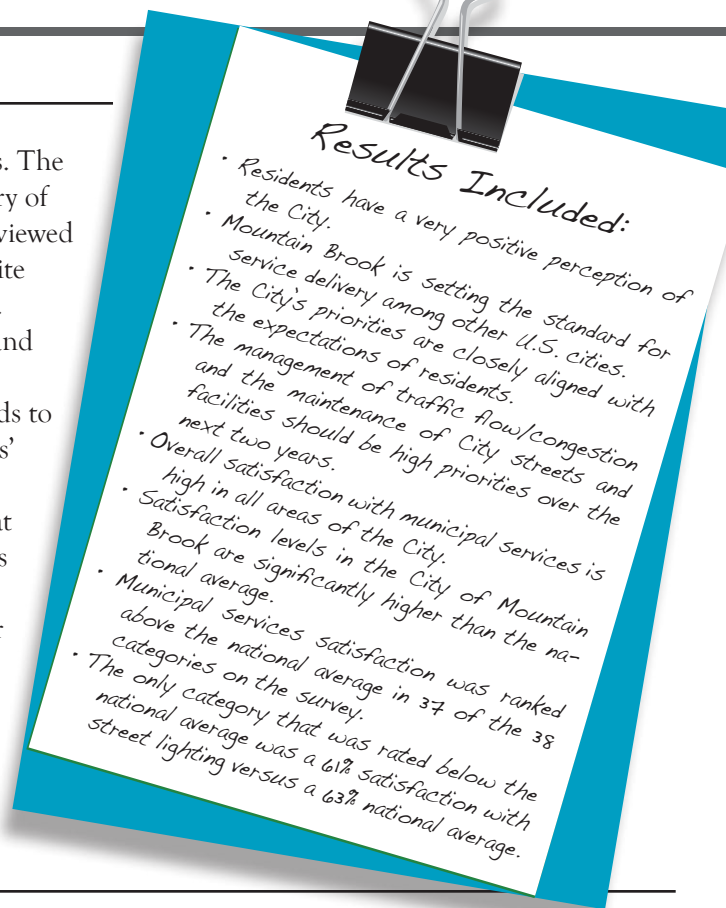 s. The
ry of
viewed
ite
nd
ds to
s'
at
s
r
Results Included:
· Residents have a very positive perception of
the City.
· Mountain Brook is setting the standard for
service delivery among other U.S. cities.
· The City's priorities are closely aligned with
the expectations of residents.
· The management of traffic flow/congestion
and the maintenance of City streets and
facilities should be high priorities over the
next two years.
· Overall satisfaction with municipal services is
high in all areas of the City.
· Satisfaction levels in the City of Mountain
Brook are significantly higher than the na-
tional average.
· Municipal services satisfaction was ranked
above the national average in 37 of the 38
categories on the survey.
· The only category that was rated below the
national average was a 61% satisfaction with
street lighting versus a 63% national average.